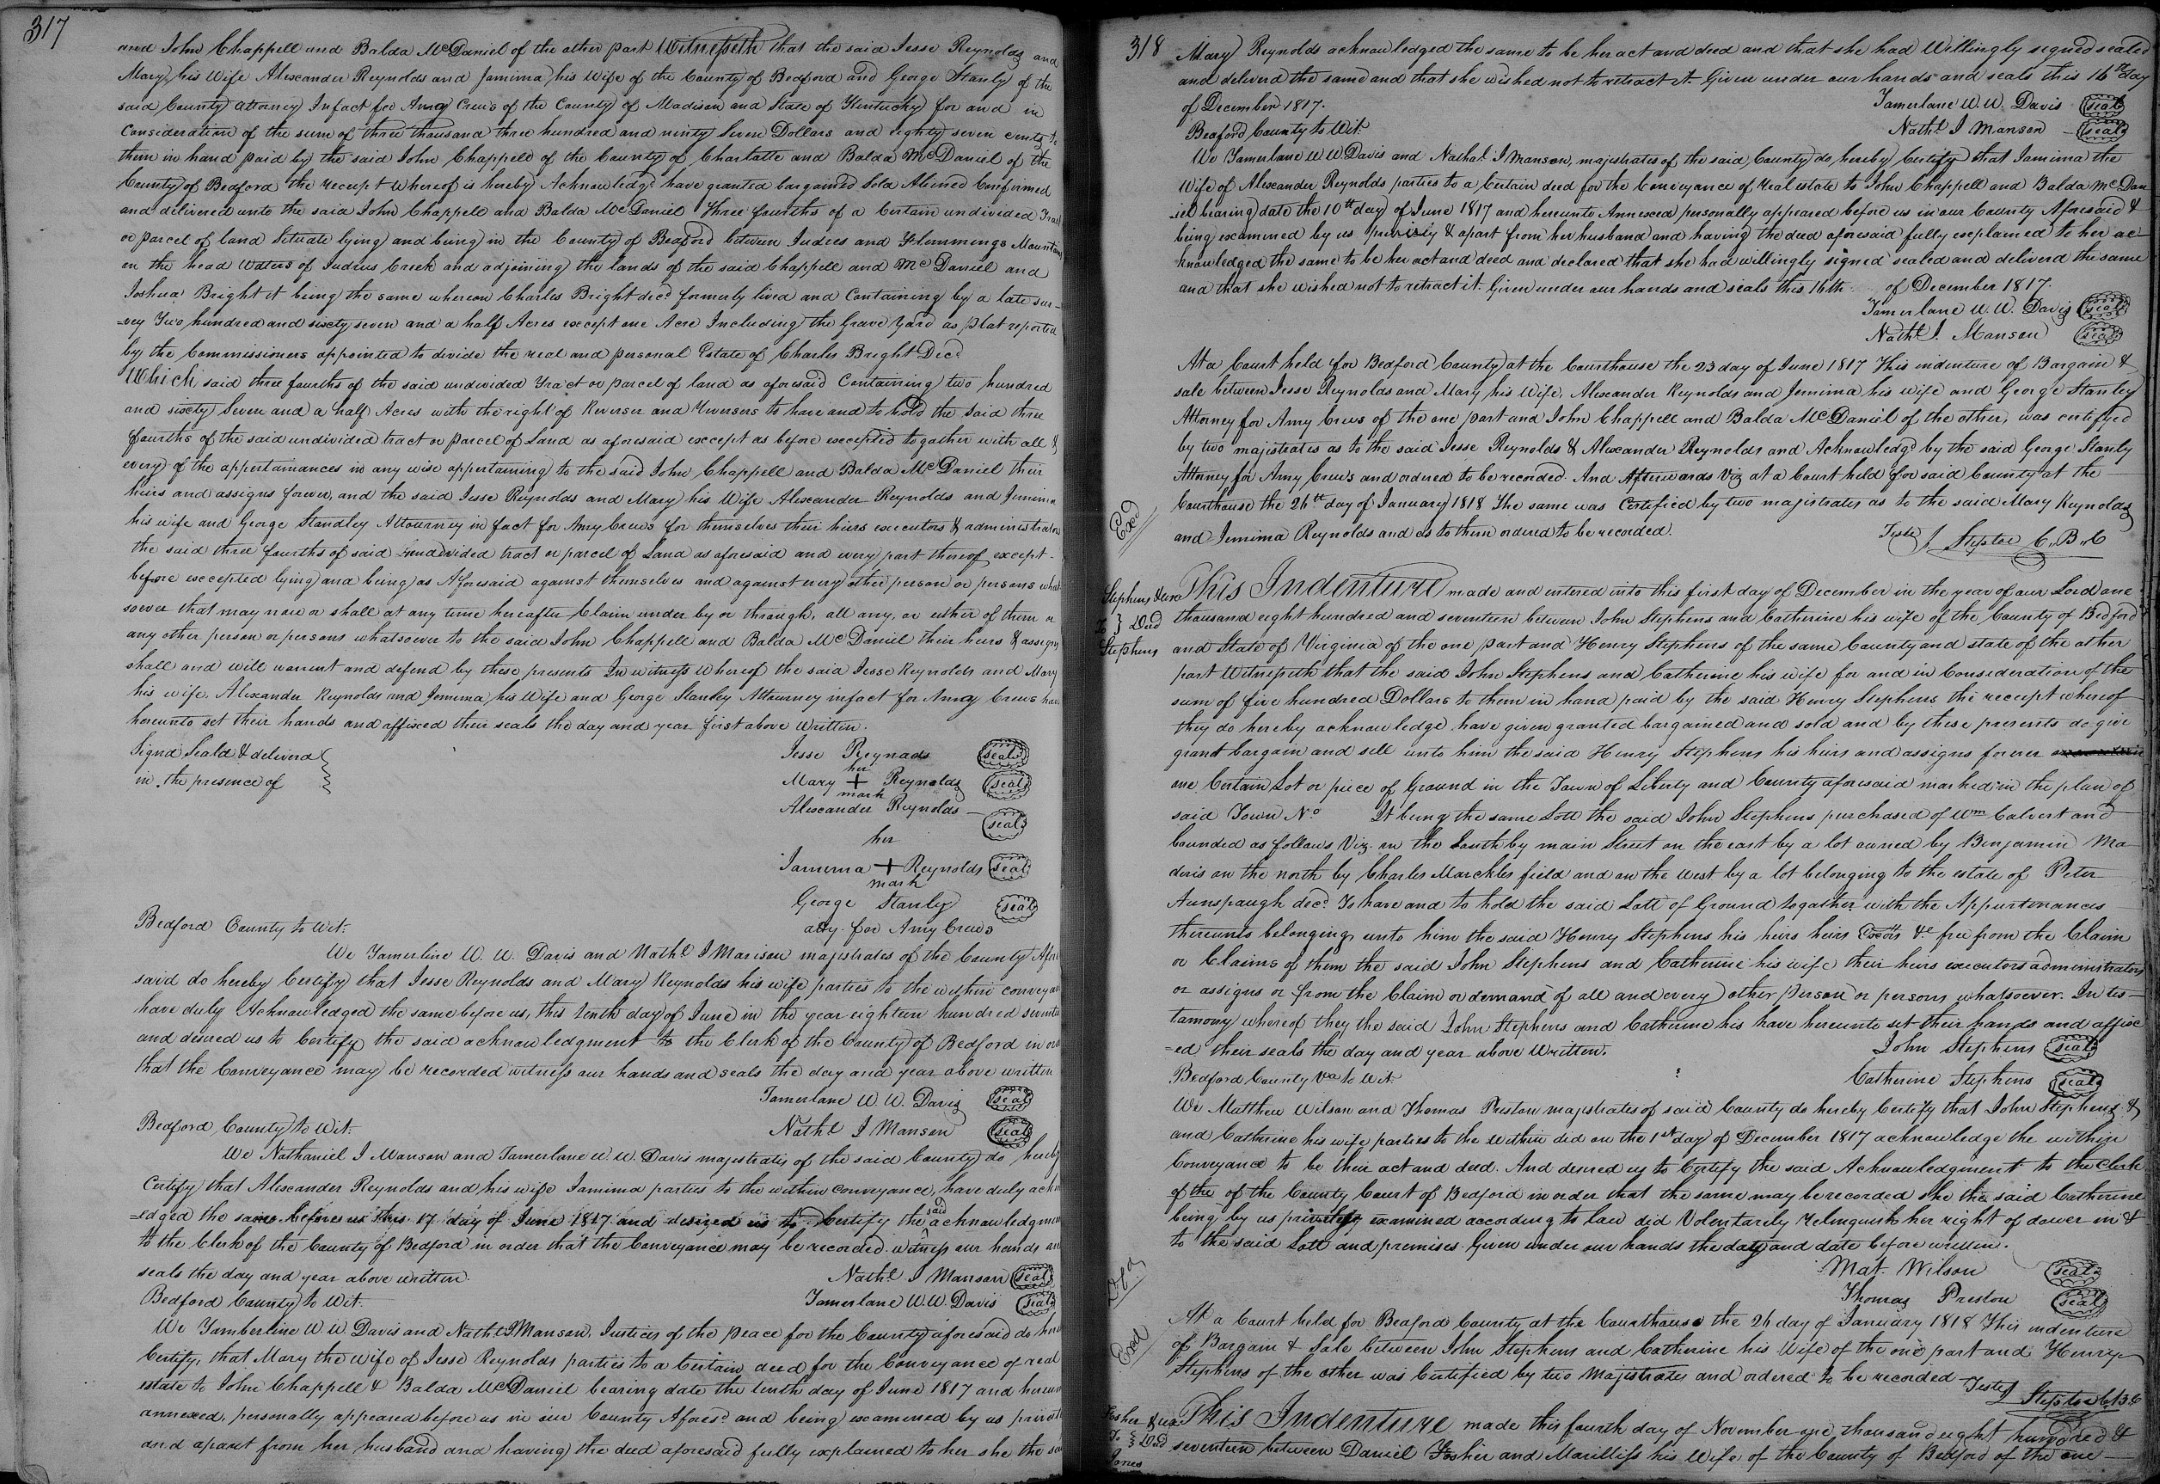 317
and John Chappell and Balda McDaniel of the other part Witnesseth that the said Jesse Reynolds and
Mary his Wife Alexander Reynolds and Jemima his Wife of the County of Bedford and George Stanly of the
said County attorney Infact for Amy Crews of the County of Madison and State of Kentucky for and in
Consideration of the sum of three thousand three hundred and ninty Seven Dollars and eighty seven cents to
them in hand paid by the said John Chappell of the County of Charlotte and Balda McDaniel of the
County of Bedford the receipt whereof is hereby Acknowledgd have granted bargained Sold Aliened Confirmed
and delivered unto the said John Chappell and Balda McDaniel Three fourths of a Certain undivided Tract
or parcel of land Situate lying and being in the County of Bedford between Judies and Flemmings Mountain
on the head waters of Judies Creek and adjoining the lands of the said Chappell and McDaniel and
Joshua Bright it being the same whereon Charles Bright decd formerly lived and Containing by a late sur=
=vey Two hundred and sixty seven and a half Acres except one Acre Including the Grave Yard as plat reported
by the Commissioners appointed to divide the real and personal Estate of Charles Bright Decd
Which said three fourths of the said undivided Tract or parcel of land as aforesaid Containing two hundred
and sixty Seven and a half Acres with the right of Reverser and Reversers to have and to hold the said three
fourths of the said undivided tract or parcel of Land as aforesaid except as before excepted togather with all &
every of the appertainances in any wise appertaining to the said John Chappell and Balda McDaniel their
heirs and assigns forever, and the said Jesse Reynolds and Mary his Wife Alexander Reynolds and Jemima
his wife and George Standley Attourney in fact for Amy Crews for themselves their heirs executors & administrators
the said three fourths of said undivided tract or parcel of Land as aforesaid and every part thereof except
before excepted lying and being as Aforesaid against themselves and against every other person or persons what
soever that may now or shall at any time hereafter Claim under by or through, all any, or either of them or
any other person or persons whatsoever to the said John Chappell and Balda McDaniel their heirs & assigns
shall and will warrent and defend by these presents In witness Whereof the said Jesse Reynolds and Mary
his wife, Alexander Reynolds and Jemima, his Wife and George Stanley Attourney infact for Amy Crews have
hereunto set their hands and affixed their seals the day and year first above written.
Signd Seald & deliverd
in the presence of
Jesse Reynads seal
her
Mary + Reynolds seal
mark
Alexander Reynolds seal
her
Jamima + Reynolds seal
mark
George Stanly seal
atty for Amy Crews
Bedford County to Wit.
We Tamerline W. W. Davis and Nathl I Manson majestrates of the County Afore
said do hereby Certify that Jesse Reynolds and Mary Reynolds his wife parties to the within conveyance
have duly Acknowledged the same before us, this tenth day of June in the year eighteen hundred seventeen
and desired us to Certify the said acknowledgment to the Clerk of the County of Bedford in order
that the Conveyance may be recorded witness our hands and seals the day and year above written
Tamerlane W. W. Davis seal
Bedford County to Wit.
Nathl I Manson seal
We Nathaniel I Manson and Tamerlane W. W. Davis majestrates of the said County do hereby
Certify that Alexander Reynolds and his wife Jamima parties to the within conveyance, have duly acknowl
=edged the same before us this 17 day of June 1817 and desired us to Certify the said acknowledgment
to the Clerk of the County of Bedford in order that the Conveyance may be recorded. witness our hands and
seals the day and year above written.
Nathl I Manson seal
Bedford County to Wit.
Tamerlane W. W. Davis seal
We Tamberline W W Davis and Nathl I Manson, Justices of the peace for the County aforesaid do hereby
Certify, that Mary the Wife of Jesse Reynolds parties to a Certain deed for the Conveyance of real
estate to John Chappell & Balda McDaniel bearing date the tenth day of June 1817 and hereunto
annexed, personally appeared before us in our County Aforesd and being examined by us privately
and apart from her husband and having the deed aforesaid fully explained to her she the said
318
Mary Reynolds acknowledged the same to be her act and deed and that she had Willingly signed sealed
and deliverd the same and that she wished not to retract it. Given under our hands and seals this 16th day
of December 1817.
Tamerlane W. W. Davis seal
Bedford County to Wit.
Nathl I Manson seal
We Tamerlane W W Davis and Nathal I Manson, majestrates of the said County do, hereby Certify that Jamima the
Wife of Alexander Reynolds parties to a Certain deed for the Conveyance of real estate to John Chappell and Balda McDan
=iel bearing date the 10th day of June 1817 and hereunto Annexed personally appeared before us in our County Aforesaid &
being examined by us privirly & apart from her husband and having the deed aforesaid fully explained to her ac=
knowledged the same to be her act and deed and declared that she had willingly signed sealed and deliverd the same
and that she wished not to retract it. Given under our hands and seals this 16th of December 1817.
Tamerlane W. W. Davis seal
Nathl I. Manson seal
At a Court held for Bedford County at the Courthouse the 23 day of June 1817 This indenture of Bargain &
sale between Jesse Reynolds and Mary his Wife, Alexander Reynolds and Jemima his wife and George Stanley
Attorney for Amy Crews of the one part and John Chappell and Balda McDaniel of the other, was certifyed
by two majestrates as to the said Jesse Reynolds & Alexander Reynolds and Acknowledgd by the said George Stanly
Attorney for Amy Crews and ordered to be recorded. And Afterwards Viz at a Court held for said County at the
Courthouse the 26th day of January 1818 The same was Certified by two majestrates as to the said Mary Reynolds
and Jemima Reynolds and as to them ordered to be recorded.
Teste J Steptoe C.B.C
Exd
Stephens & ux
To } Deed
Stephens
This Indenture made and entered into this first day of December in the year of our Lord one
thousand eight hundred and seventeen between John Stephens and Catherine his wife of the County of Bedford
and State of Virginia of the one part and Henry Stephens of the same County and state of the other
part Witnesseth that the said John Stephens and Catherine his wife for and in Consideration of the
sum of five hundred Dollars to them in hand paid by the said Henry Stephens the receipt whereof
they do hereby acknowledge have given granted bargained and sold and by these presents do give
grant bargain and sell unto him the said Henry Stephens his heirs and assigns forever
one Certain Lot or piece of Ground in the Town of Liberty and County aforesaid marked in the plan of
said Town No It being the same Lott the said John Stephens purchased of Wm Calvert and
bounded as follows Viz. on the South by main Street on the east by a lot owned by Benjamin Ma
deris on the north by Charles Marckles field and on the West by a lot belonging to the estate of Peter
Aunspaugh decd. To have and to hold the said Lott of Ground togather with the Appurtenances
thereunto belonging unto him the said Henry Stephens his heirs heirs Exors &c free from the Claim
or Claims of them the said John Stephens and Catherine his wife their heirs executors administrators
or assigns or from the Claim or demand of all and every other person or persons whatsoever. In tes=
tamony whereof they the said John Stephens and Catherine his have hereunto set their hands and affix
=ed their seals the day and year above written.
John Stephens seal
Bedford County Va to Wit.
Catherine Stephens seal
We Matthew Wilson and Thomas Preston majestrates of said County do hereby Certify that John Stephens &
and Catherine his wife parties to the within ded on the 1st day of December 1817 acknowledge the within
Conveyance to be their act and deed. And desired us to Certify the said Acknowledgment to the Clerk
of the of the County Court of Bedford in order that the same may be recorded she the said Catherine
being by us privily examined according to law did Volentarily relinquish her right of dower in &
to the said Lott and premises Given under our hands the day and date before written.
Mat. Wilson seal
Thomas Preston seal
Exed
At a Court held for Bedford County at the Courthouse the 26 day of January 1818 This indenture
of Bargain & Sale between John Stephens and Catherine his Wife of the one part and Henry
Stephens of the other was Certified by two Majestrates and ordered to be recorded
Teste J Steptoe C B C
Fosher & ux
To } Deed
Jones
This Indenture made this fourth day of November one thousand eight hundred &
seventeen between Daniel Fosher and Marilliss his Wife of the County of Bedford of the one